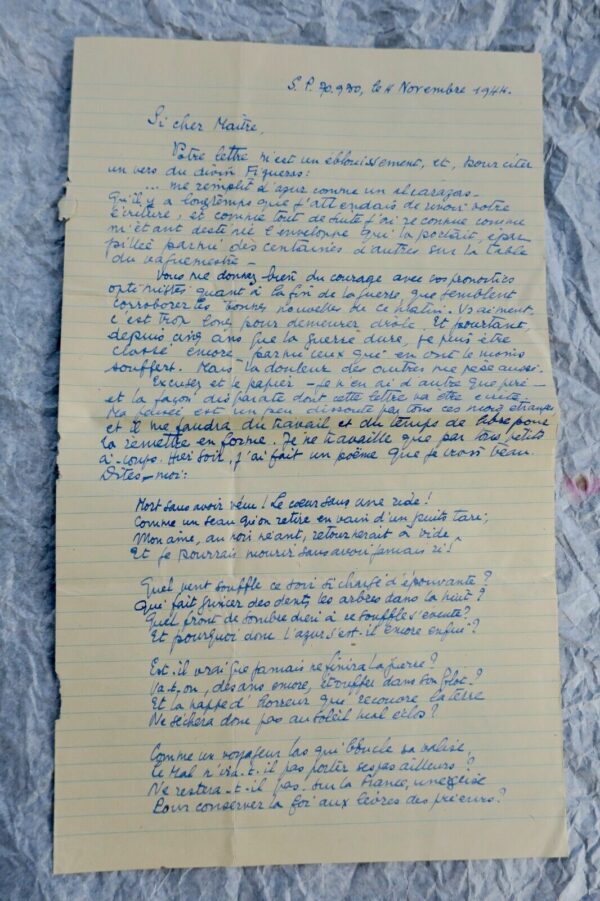 S. P. 70.970, le 4 Novembre 1944.
Si cher Maître,
Votre lettre m'est un éblouissement, et, pour citer
un vers du divin Figueras:
... me remplit d'azur comme un alcarazas_
Qu'il y a longtemps que j'attendais de revoir votre
écriture, et comme tout de suite j'ai reconnue comme
m'étant destinée l'enveloppe qui la portait, épar
pillée parmi des centaines d'autres sur la table
du vaguemestre_
Vous me donnez bien du courage avec vos pronostics
optimistes quant à la fin de la guerre, que semblent
corroborer les bonnes nouvelles de ce matin. Vraiment
c'est trop long pour demeurer drôle. Et pourtant,
depuis cinq ans que la guerre dure, je puis être
classé encore parmi ceux qui en ont le moins
souffert. Mais la douleur des autres me pèse aussi.
Excusez et le papier _ je n'en ai d'autre que
et la façon disparate dont cette lettre va être écrite.
Ma pensée est un peu dissoute par tous ces mois étranges
et il me faudra du travail et du temps de libre pour
la remettre en forme. Je ne travaille que par tous petits
à-coups. Hier soir, j'ai fait un poème que je crois beau.
Dites-moi:
Mort sans avoir vécu! Le cœur sans une ride!
Comme un seau qu'on retire en vain d'un puits tari,
Mon âme, au noir néant, retournerait à vide,
Et je pourrais mourir sans avoir jamais ri!
Quel vent souffle ce soir si chargé d'épouvante?
Qui fait grincer des dents les arbres dans la nuit?
Quel front de sombre dieu à ce souffle s'évente?
Et pourquoi donc l'azur s'est-il encore enfui?
Est-il vrai que jamais ne finira la guerre?
Va-t-on, dix ans encore, étouffer dans son
Et la nappe d'horreur qui recouvre la terre
Ne séchera donc pas au soleil mal éclos?
Comme un voyageur las qui boucle sa valise,
Le Mal n'ira-t-il pas porter ses pas ailleurs?
Ne restera-t-il pas sur la France, une église
Pour conserver la foi aux lèvres des prieurs?